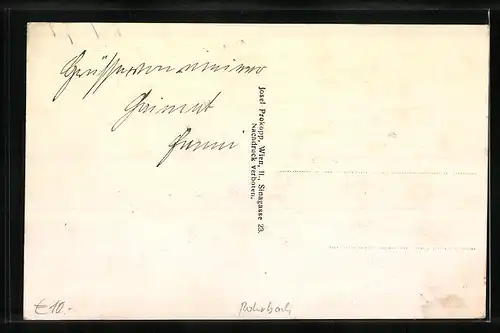 Grüsse von meiner
Heimat
Fanni
Josef Prokopp, Wien, II., Sinagasse 23.
Nachdruck verboten.
€10.-
Rohrbach